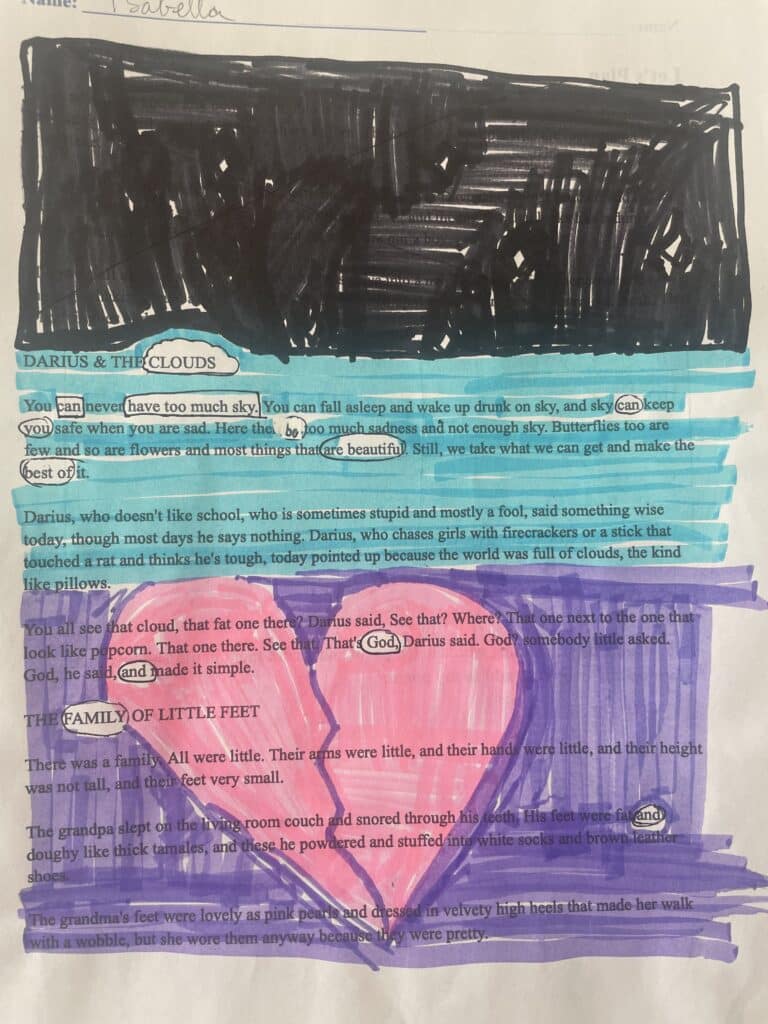 Name: Isabella
DARIUS & THE CLOUDS
You can never have too much sky. You can fall asleep and wake up drunk on sky, and sky can keep
you safe when you are sad. Here the be too much sadness and not enough sky. Butterflies too are
few and so are flowers and most things that are beautiful. Still, we take what we can get and make the
best of it.
Darius, who doesn't like school, who is sometimes stupid and mostly a fool, said something wise
today, though most days he says nothing. Darius, who chases girls with firecrackers or a stick that
touched a rat and thinks he's tough, today pointed up because the world was full of clouds, the kind
like pillows.
You all see that cloud, that fat one there? Darius said, See that? Where? That one next to the one that
look like popcorn. That one there. See that. That's God, Darius said. God? somebody little asked.
God, he said, and made it simple.
THE FAMILY OF LITTLE FEET
There was a family. All were little. Their arms were little, and their hands were little, and their height
was not tall, and their feet very small.
The grandpa slept on the living room couch and snored through his teeth. His feet were fat and
doughy like thick tamales, and these he powdered and stuffed into white socks and brown leather
shoes.
The grandma's feet were lovely as pink pearls and dressed in velvety high heels that made her walk
with a wobble, but she wore them anyway because they were pretty.